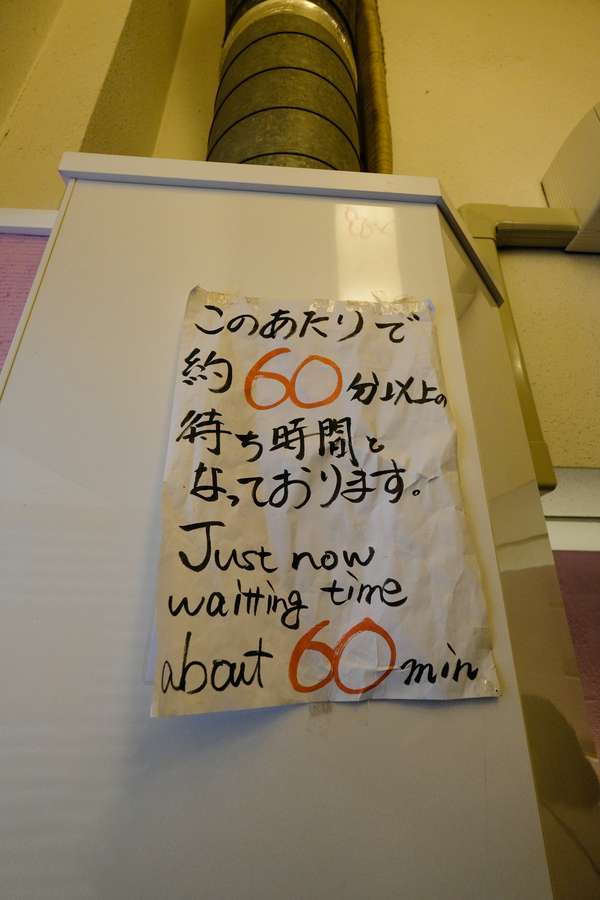 このあたりで
約60分以上の
待ち時間と
なっております。
Just now
waitting time
about 60 min